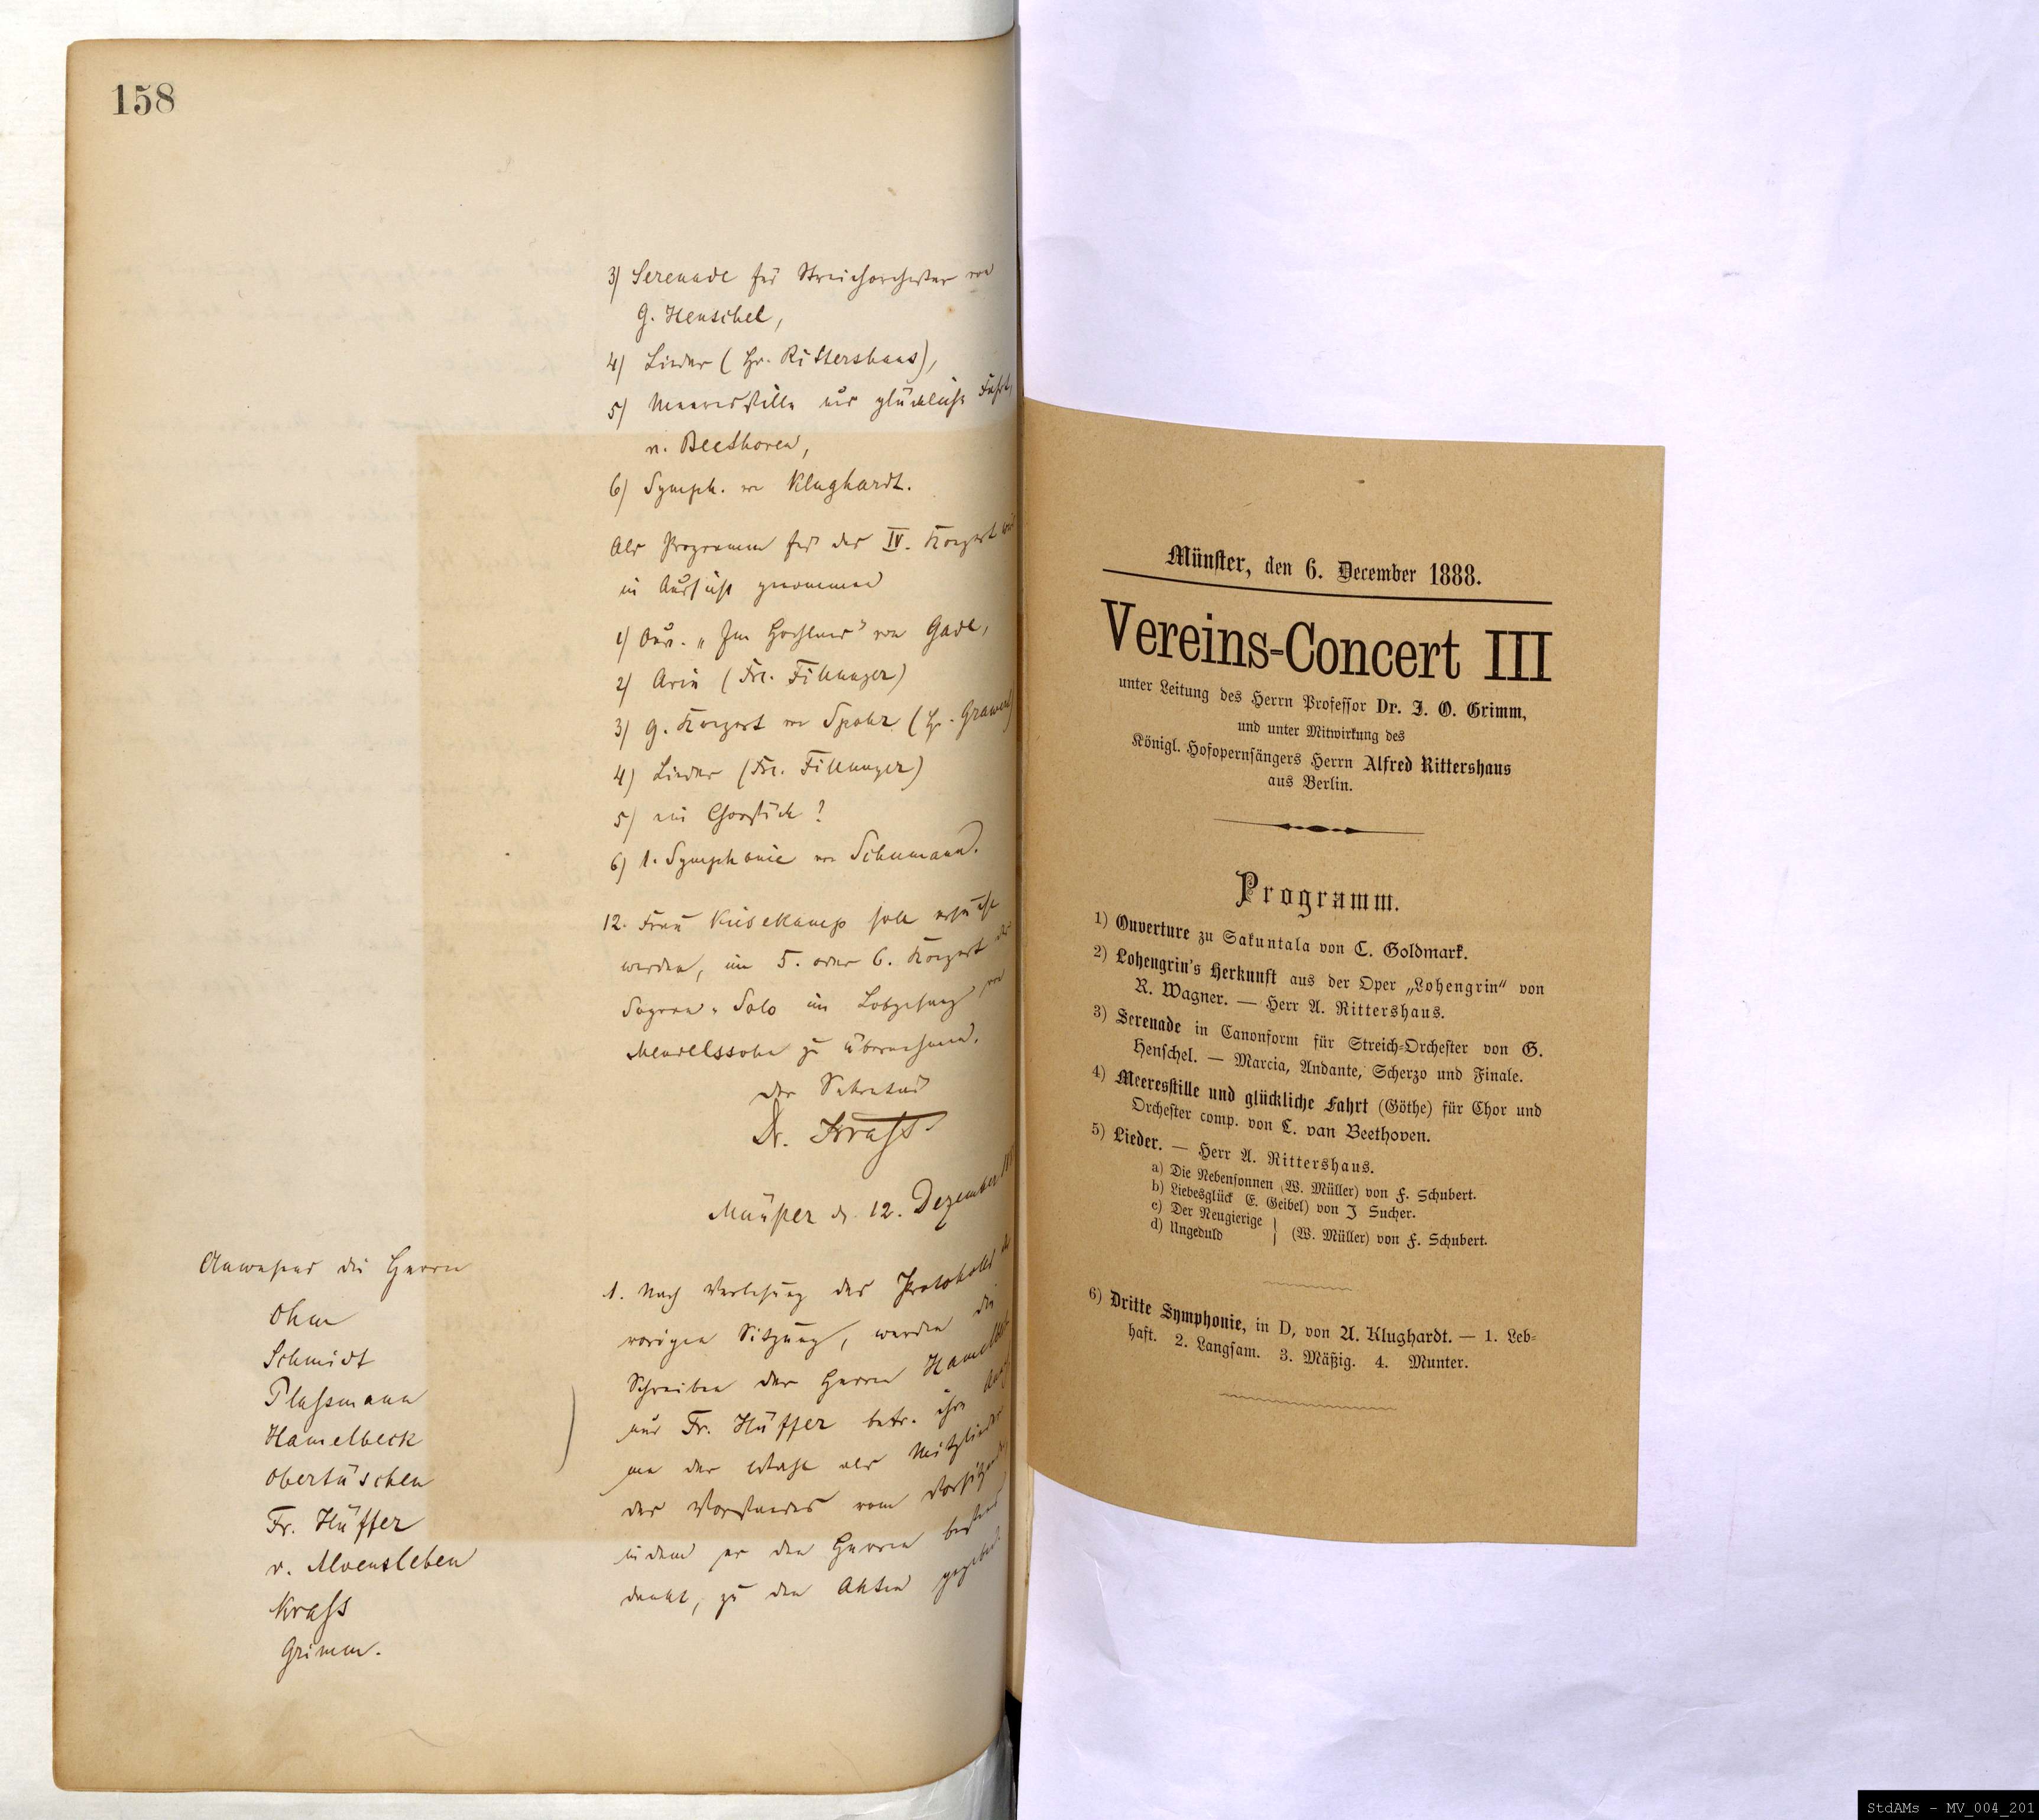 158
3) Serenade für Streichorchester von
G. Henschel,
4) Lieder (Hr. Rittershaus),
5) Meeresstille und glückliche Fahrt,
v. Beethoven,
6) Symph. von Klughardt.
Als Programm für das IV. Konzert wird
in Aussicht genommen
1) Ouv. „Im Hochland" von Gade,
2) Arie (Frl. Fillunger)
3) g. Konzert von Spohr (Hr. Grawert)
4) Lieder (Frl. Fillunger)
5) ein Chorstück?
6) 1. Symphonie von Schumann.
12. Frau Kiesekamp soll ersucht
werden, im 5. oder 6. Konzert das
Sopran-Solo im Lobgesang von
Mendelssohn zu übernehmen.
Der Sekretär
Dr. Krass
Münster d. 12. Dezember
Anwesend die Herrn
Ohm
Schmidt
Plassmann
Hamelbeck
Obertüschen
Fr. Hüffer
v. Alvensleben
Krass
Grimm.
1. Nach Verlesung des Protokolls der
vorigen Sitzung, werden die
Schreiben der Herren Hamelbeck
und Fr. Hüffer betr. ihre
me der Wahl als Mitglieder
des Vorstandes vom Vorsitzenden,
indem er den Herren bestens
dankt, zu den Akten gegeben.
Münster, den 6. December 1888.
Vereins-Concert III
unter Leitung des Herrn Professor Dr. J. O. Grimm,
und unter Mitwirkung des
Königl. Hofopernsängers Herrn Alfred Rittershaus
aus Berlin.
Programm.
1) Ouverture zu Sakuntala von C. Goldmark.
2) Lohengrin's Herkunft aus der Oper „Lohengrin" von
R. Wagner. — Herr A. Rittershaus.
3) Serenade in Canonform für Streich-Orchester von G.
Henschel. — Marcia, Andante, Scherzo und Finale.
4) Meeresstille und glückliche Fahrt (Göthe) für Chor und
Orchester comp. von L. van Beethoven.
5) Lieder. — Herr A. Rittershaus.
a) Die Nebensonnen (W. Müller) von F. Schubert.
b) Liebesglück E. Geibel) von J Sucher.
c) Der Neugierige
d) Ungeduld } (W. Müller) von F. Schubert.
6) Dritte Symphonie, in D, von A. Klughardt. — 1. Leb-
haft. 2. Langsam. 3. Mäßig. 4. Munter.
StdAMs - MV_004_201